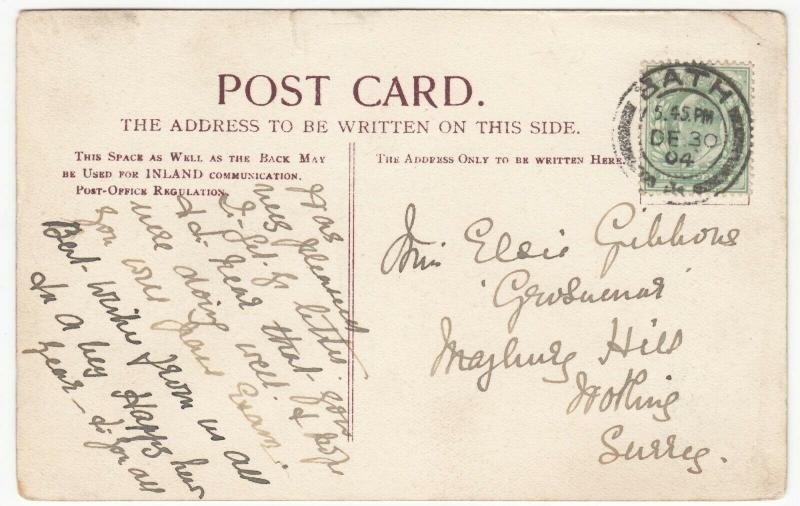 POST CARD.
THE ADDRESS TO BE WRITTEN ON THIS SIDE.
THIS SPACE AS WELL AS THE BACK MAY
BE USED FOR INLAND COMMUNICATION.
POST-OFFICE REGULATION.
THE ADDRESS ONLY TO BE WRITTEN HERE.
BATH
5.45.PM
DE 30
04
Miss Elsie Gibbons
Grosvenor
Maybury Hill
Woking
Surrey.
Was
very pleased
to get yr letter
& to hear that you
were doing well. & hope
you will pass Exam.
Best wishes from us all
for a very Happy New
Year to you all